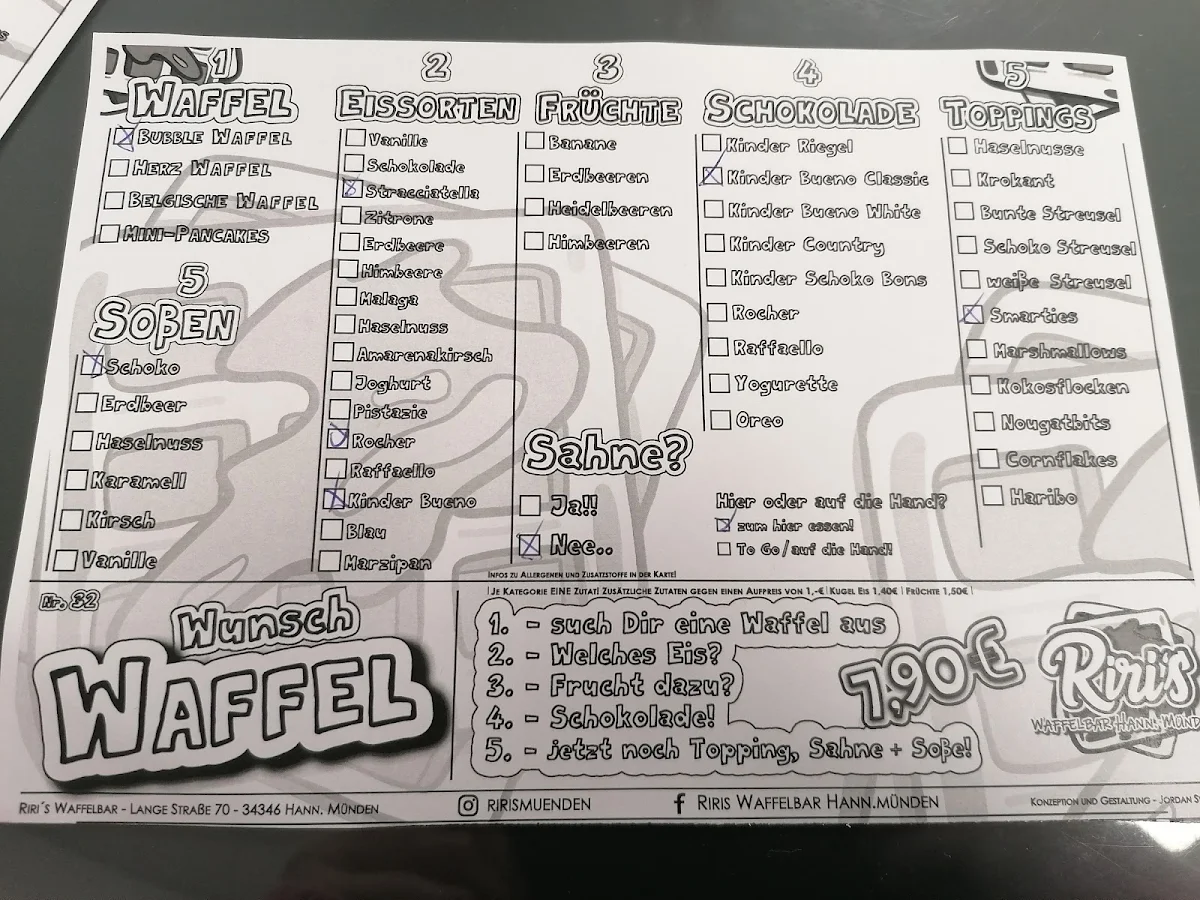 1
WAFFEL
BUBBLE WAFFEL
HERZ WAFFEL
BELGISCHE WAFFEL
MINI-PANCAKES
5
Soßen
Schoko
Erdbeer
Haselnuss
Karamell
Kirsch
Vanille
2
EISSORTEN
Vanille
Schokolade
Stracciatella
Zitrone
Erdbeere
Himbeere
Malaga
Haselnuss
Amarenakirsch
Joghurt
Pistazie
Rocher
Raffaello
Kinder Bueno
Blau
Marzipan
3
FRÜCHTE
Banane
Erdbeeren
Heidelbeeren
Himbeeren
Sahne?
Ja!!
Nee..
4
SCHOKOLADE
Kinder Riegel
Kinder Bueno Classic
Kinder Bueno White
Kinder Country
Kinder Schoko Bons
Rocher
Raffaello
Yogurette
Oreo
Hier oder auf die Hand?
zum hier essen!
To Go/auf die Hand!
5
TOPPINGS
Haselnusse
Krokant
Bunte Streusel
Schoko Streusel
weiße Streusel
Smarties
Marshmallows
Kokosflocken
Nougatbits
Cornflakes
Haribo
INFOS ZU ALLERGENEN UND ZUSATZSTOFFE IN DER KARTE!
JE KATEGORIE EINE ZUTAT! ZUSÄTZLICHE ZUTATEN GEGEN EINEN AUFPREIS VON 1,-€ | KUGEL EIS 1,40€ | FRÜCHTE 1,50€ |
Nr. 32
Wunsch
WAFFEL
1. - such Dir eine Waffel aus
2. - Welches Eis?
3. - Frucht dazu?
4. - Schokolade!
5. - jetzt noch Topping, Sahne + Soße!
7,90€
Riri's
WAFFELBAR HANN. MÜND
RIRI´S WAFFELBAR - LANGE STRAßE 70 - 34346 HANN. MÜNDEN
RIRISMUENDEN
RIRIS WAFFELBAR HANN.MÜNDEN
KONZEPTION UND GESTALTUNG - JORDAN